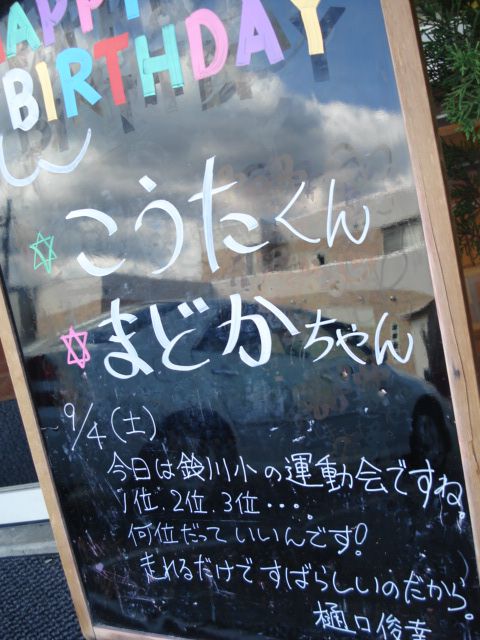 HAPPY
BIRTHDAY
こうたくん
まどかちゃん
9/4(土)
今日は鈴川小の運動会ですね。
1位.2位.3位・・・。
何位だっていいんです!
走れるだけですばらしいのだから。
樋口俊幸